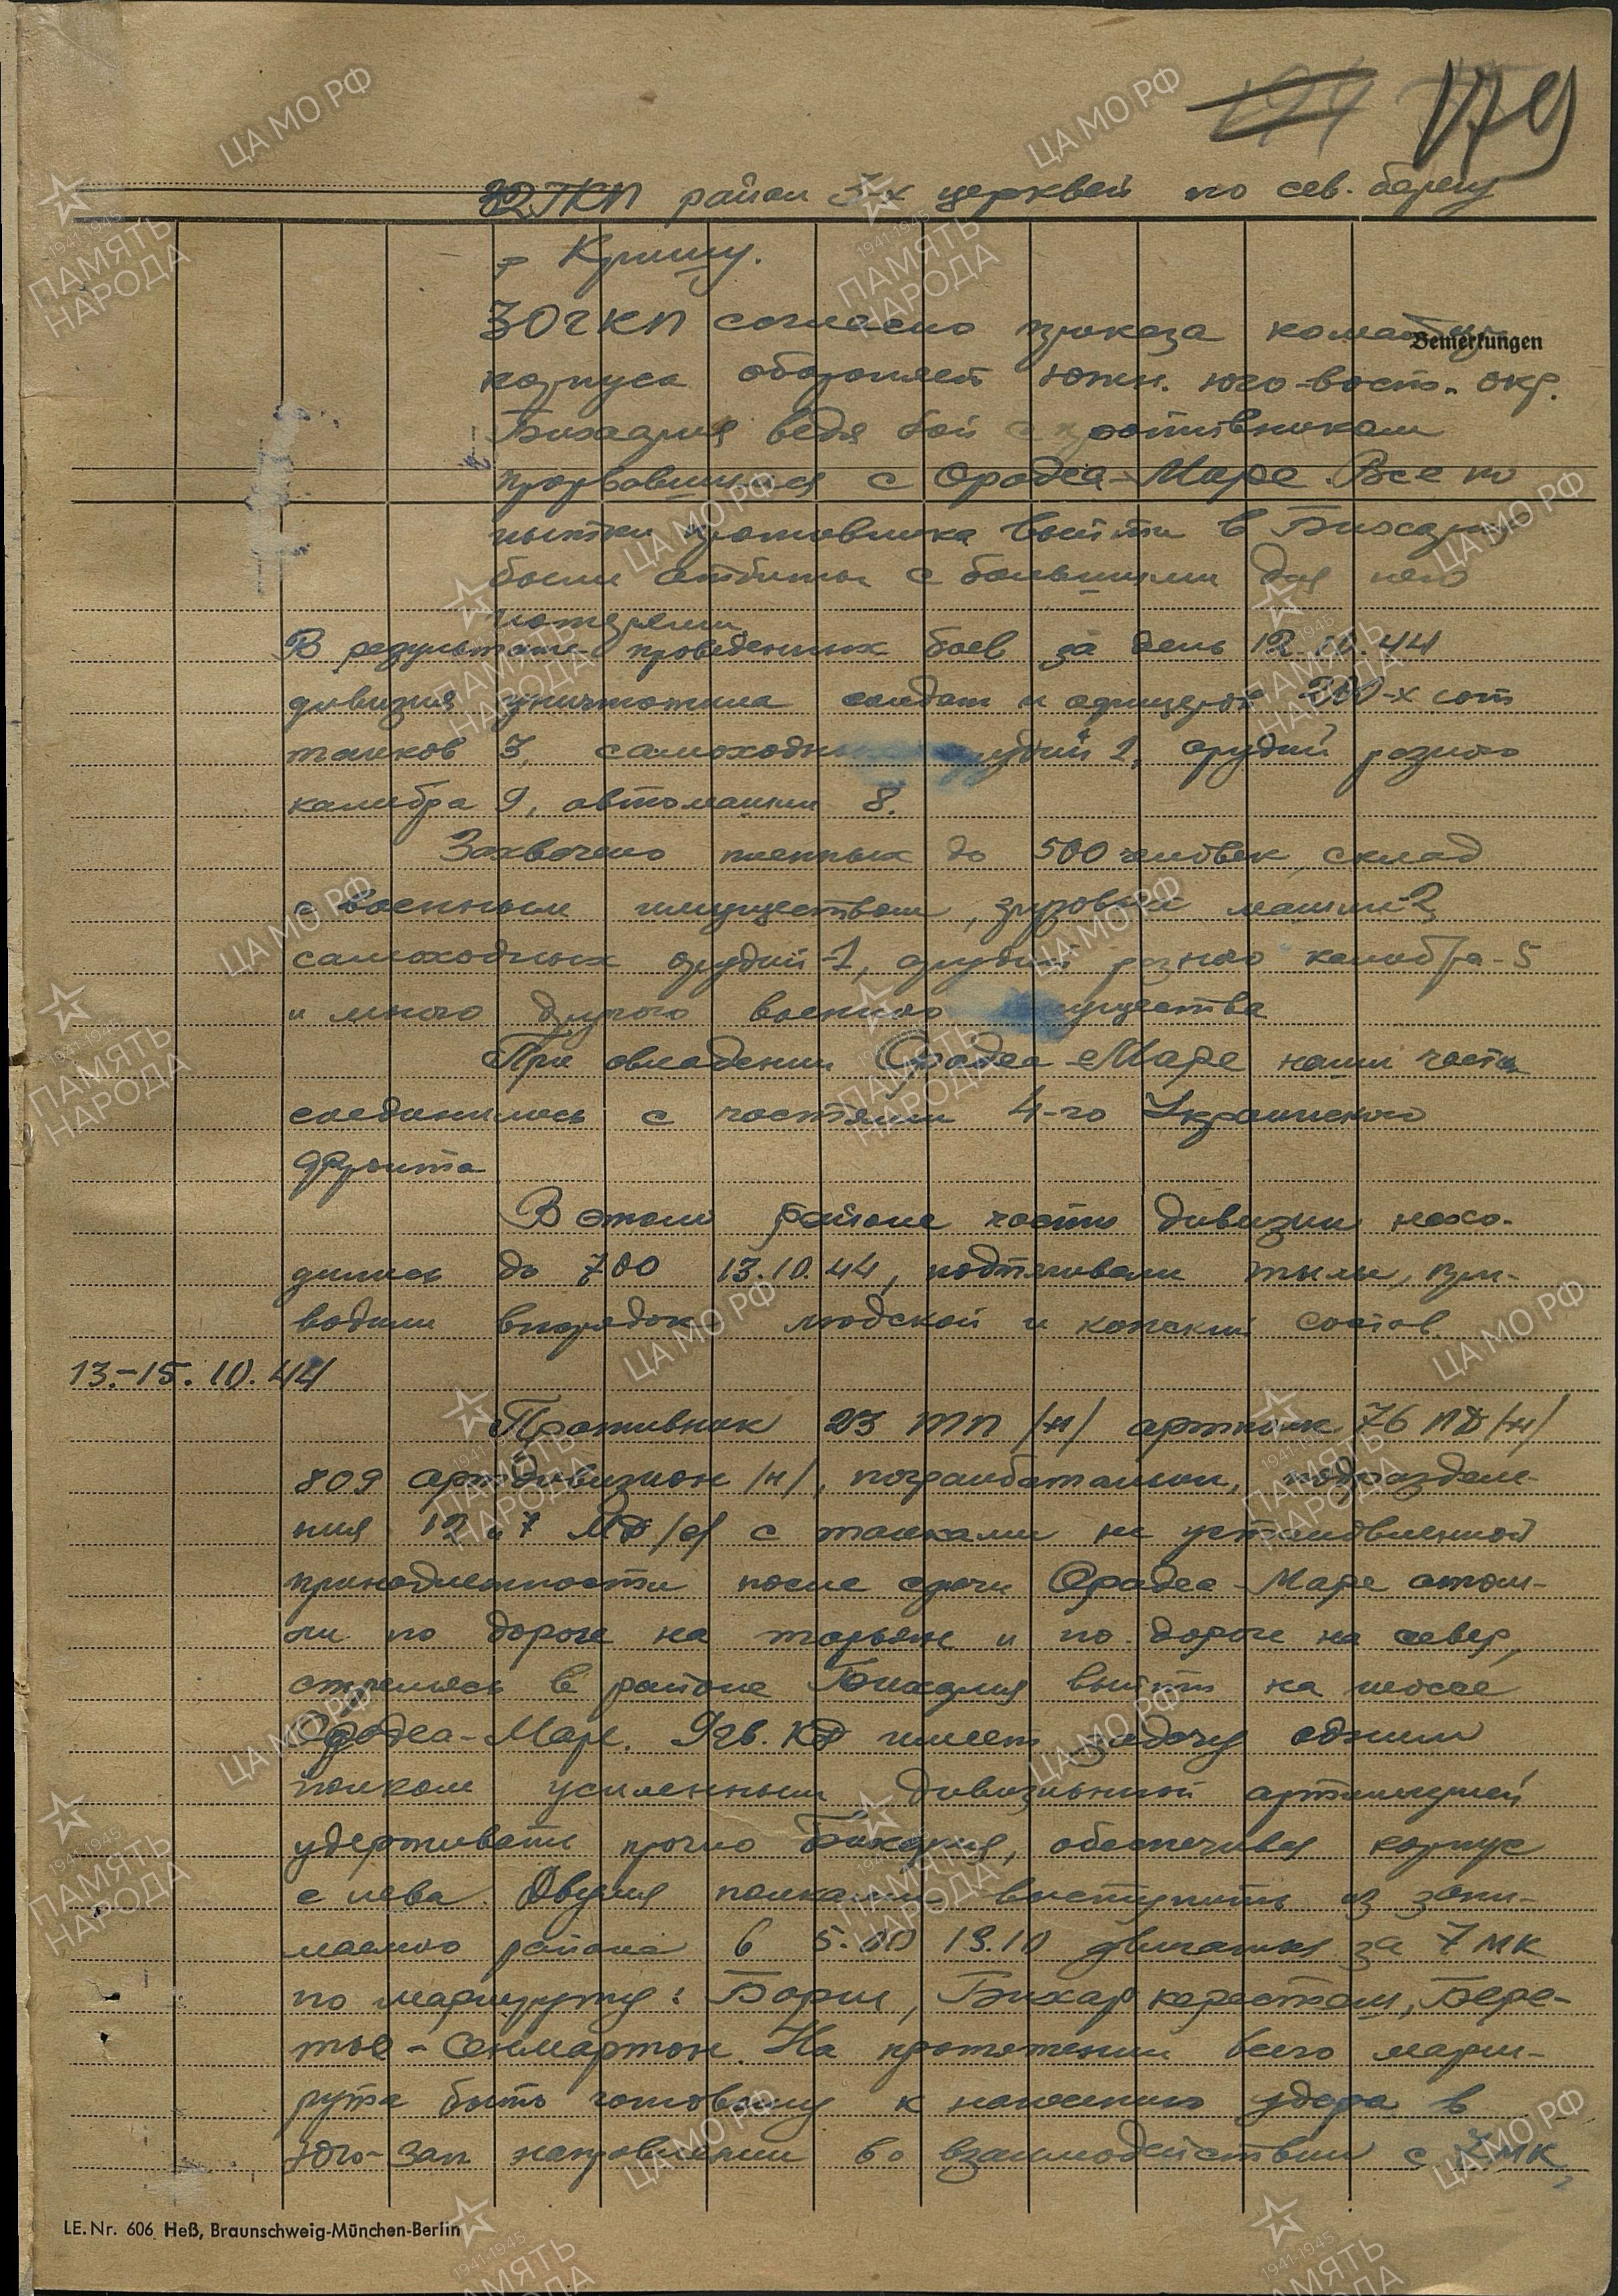 179
32 ГКП район 3-х церквей по сев. берегу
р Кришу.
30 гкп согласно приказа команд.
Bemerkungen
корпуса обороняет южн. юго-вост. окр.
Бихария ведя бой с противником
прорвавшимся с Орадеа-Маре. Все по
пытки противника выйти в Бихария
были отбиты с большими для него
потерями
В результате проведенных боев за день 12.10.44
дивизия уничтожила солдат и офицеров 200-х сот
танков 3, самоходн удий 2, орудий разного
калибра 9, автомашин 8.
Захвачено пленных до 500 человек, склад
с военным имуществом, грузовых машин-2,
самоходных орудий-1, орудий разного калибра-5
и много другого военного ущества
При овладении Орадеа-Маре наши части
соединились с частями 4-го Украинского
фронта
В этом районе части дивизии нахо-
дились до 7 00 13.10.44, подтягивали тылы, при-
водили впорядок людской и конский состав.
13.-15.10.44
Противник 23 тп /н/ артполк 76 ПД/н/
809 артдивизион /н/, погранбатальон, подразделе-
ния 12 и 7 /в/ с танками не установленной
принадлежности после сдачи Орадеа-Маре отош-
ли по дороге на тарьян и по дороге на север,
стремясь в районе Бихария выйти на шоссе
Орадеа-Маре. 9 гв. КД имеет задачу одним
полком усиленным дивизионной артиллерией
удерживать прочно Бихария, обеспечивая корпус
с лева. Двумя полками выступить из зани-
маемого района в 5.00 13.10 двигаться за 7 мк
по маршруту: Борш, Бихар керестеш, Бере-
тьо-Сенмартон. На протяжении всего марш-
рута быть готовому к нанесению удара в
юго-зап направлении во взаимодействии с 7 МК,
LE. Nr. 606 Heß, Braunschweig-München-Berlin
ЦА МО РФ
ПАМЯТЬ НАРОДА
1941-1945